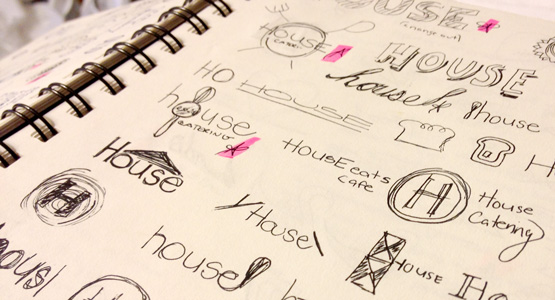 HOUSE
HOUSE
CATERING
HOUSE
HO
HOUSE
house
house
house
CATERING
House
HOUSE eats
cafe
H
House
Catering
H
House
HOUSE
house
H